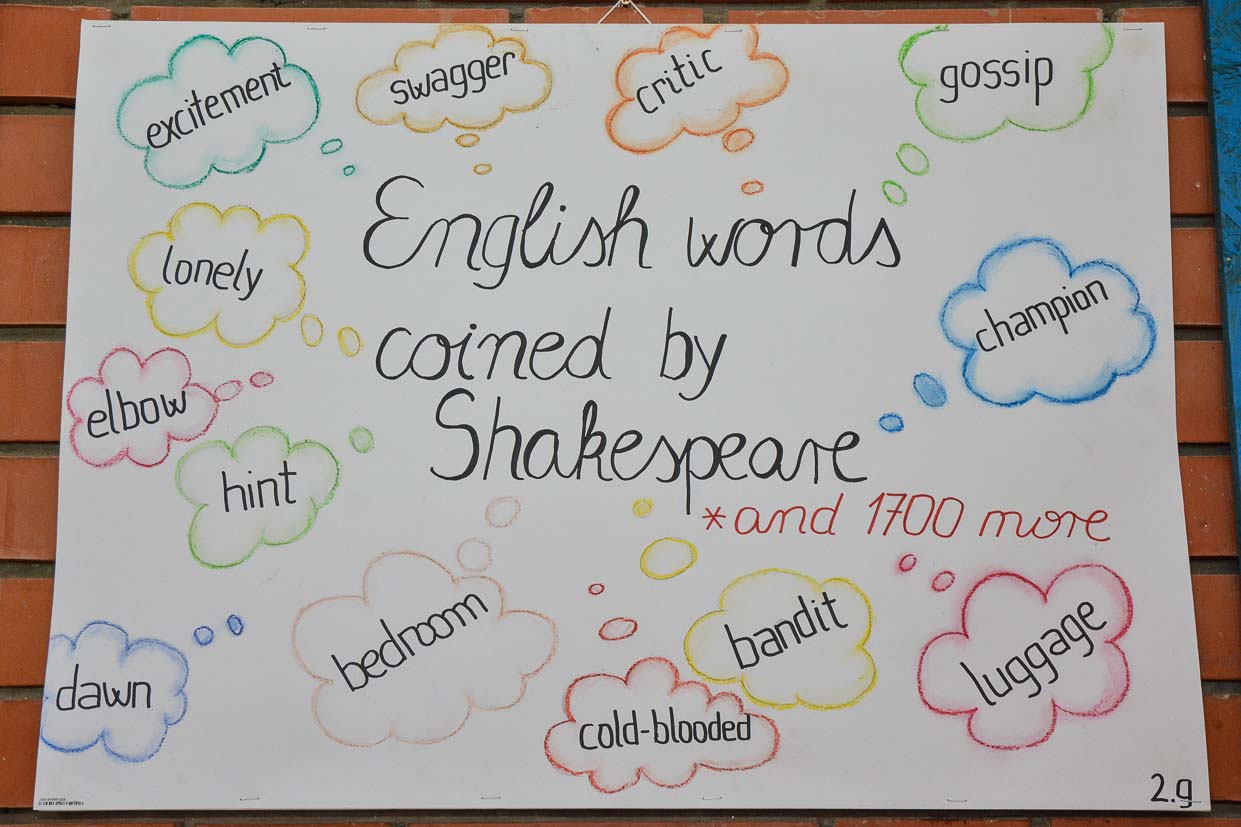 excitement
swagger
critic
gossip
English words
coined by
Shakespeare
*and 1700 more
lonely
champion
elbow
hint
bedroom
bandit
luggage
dawn
cold-blooded
2.g